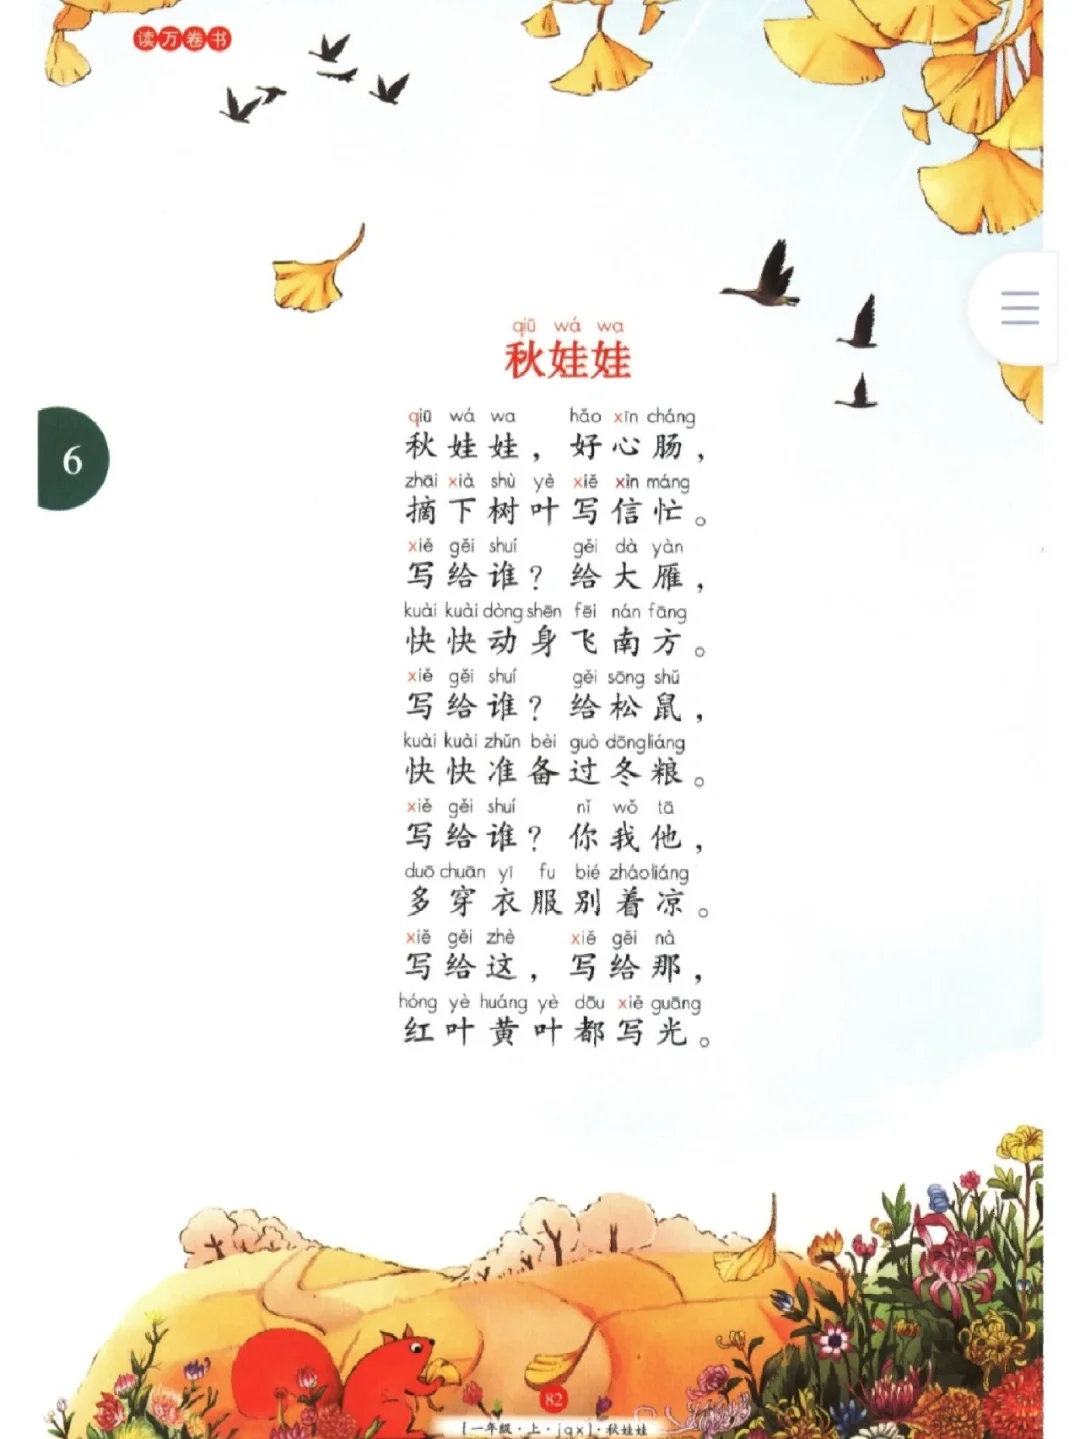 读万卷书
qiū wá wa
秋娃娃
qiū wá wa hǎo xīn cháng
秋娃娃，好心肠，
zhāi xià shù yè xiě xìn máng
摘下树叶写信忙。
xiě gěi shuí gěi dà yàn
写给谁？给大雁，
kuài kuài dòng shēn fēi nán fāng
快快动身飞南方。
xiě gěi shuí gěi sōng shǔ
写给谁？给松鼠，
kuài kuài zhǔn bèi guò dōng liáng
快快准备过冬粮。
xiě gěi shuí nǐ wǒ tā
写给谁？你我他，
duō chuān yī fu bié zháo liáng
多穿衣服别着凉。
xiě gěi zhè xiě gěi nà
写给这，写给那，
hóng yè huáng yè dōu xiě guāng
红叶黄叶都写光。
6
82
[一年级·上·jqx]·秋娃娃